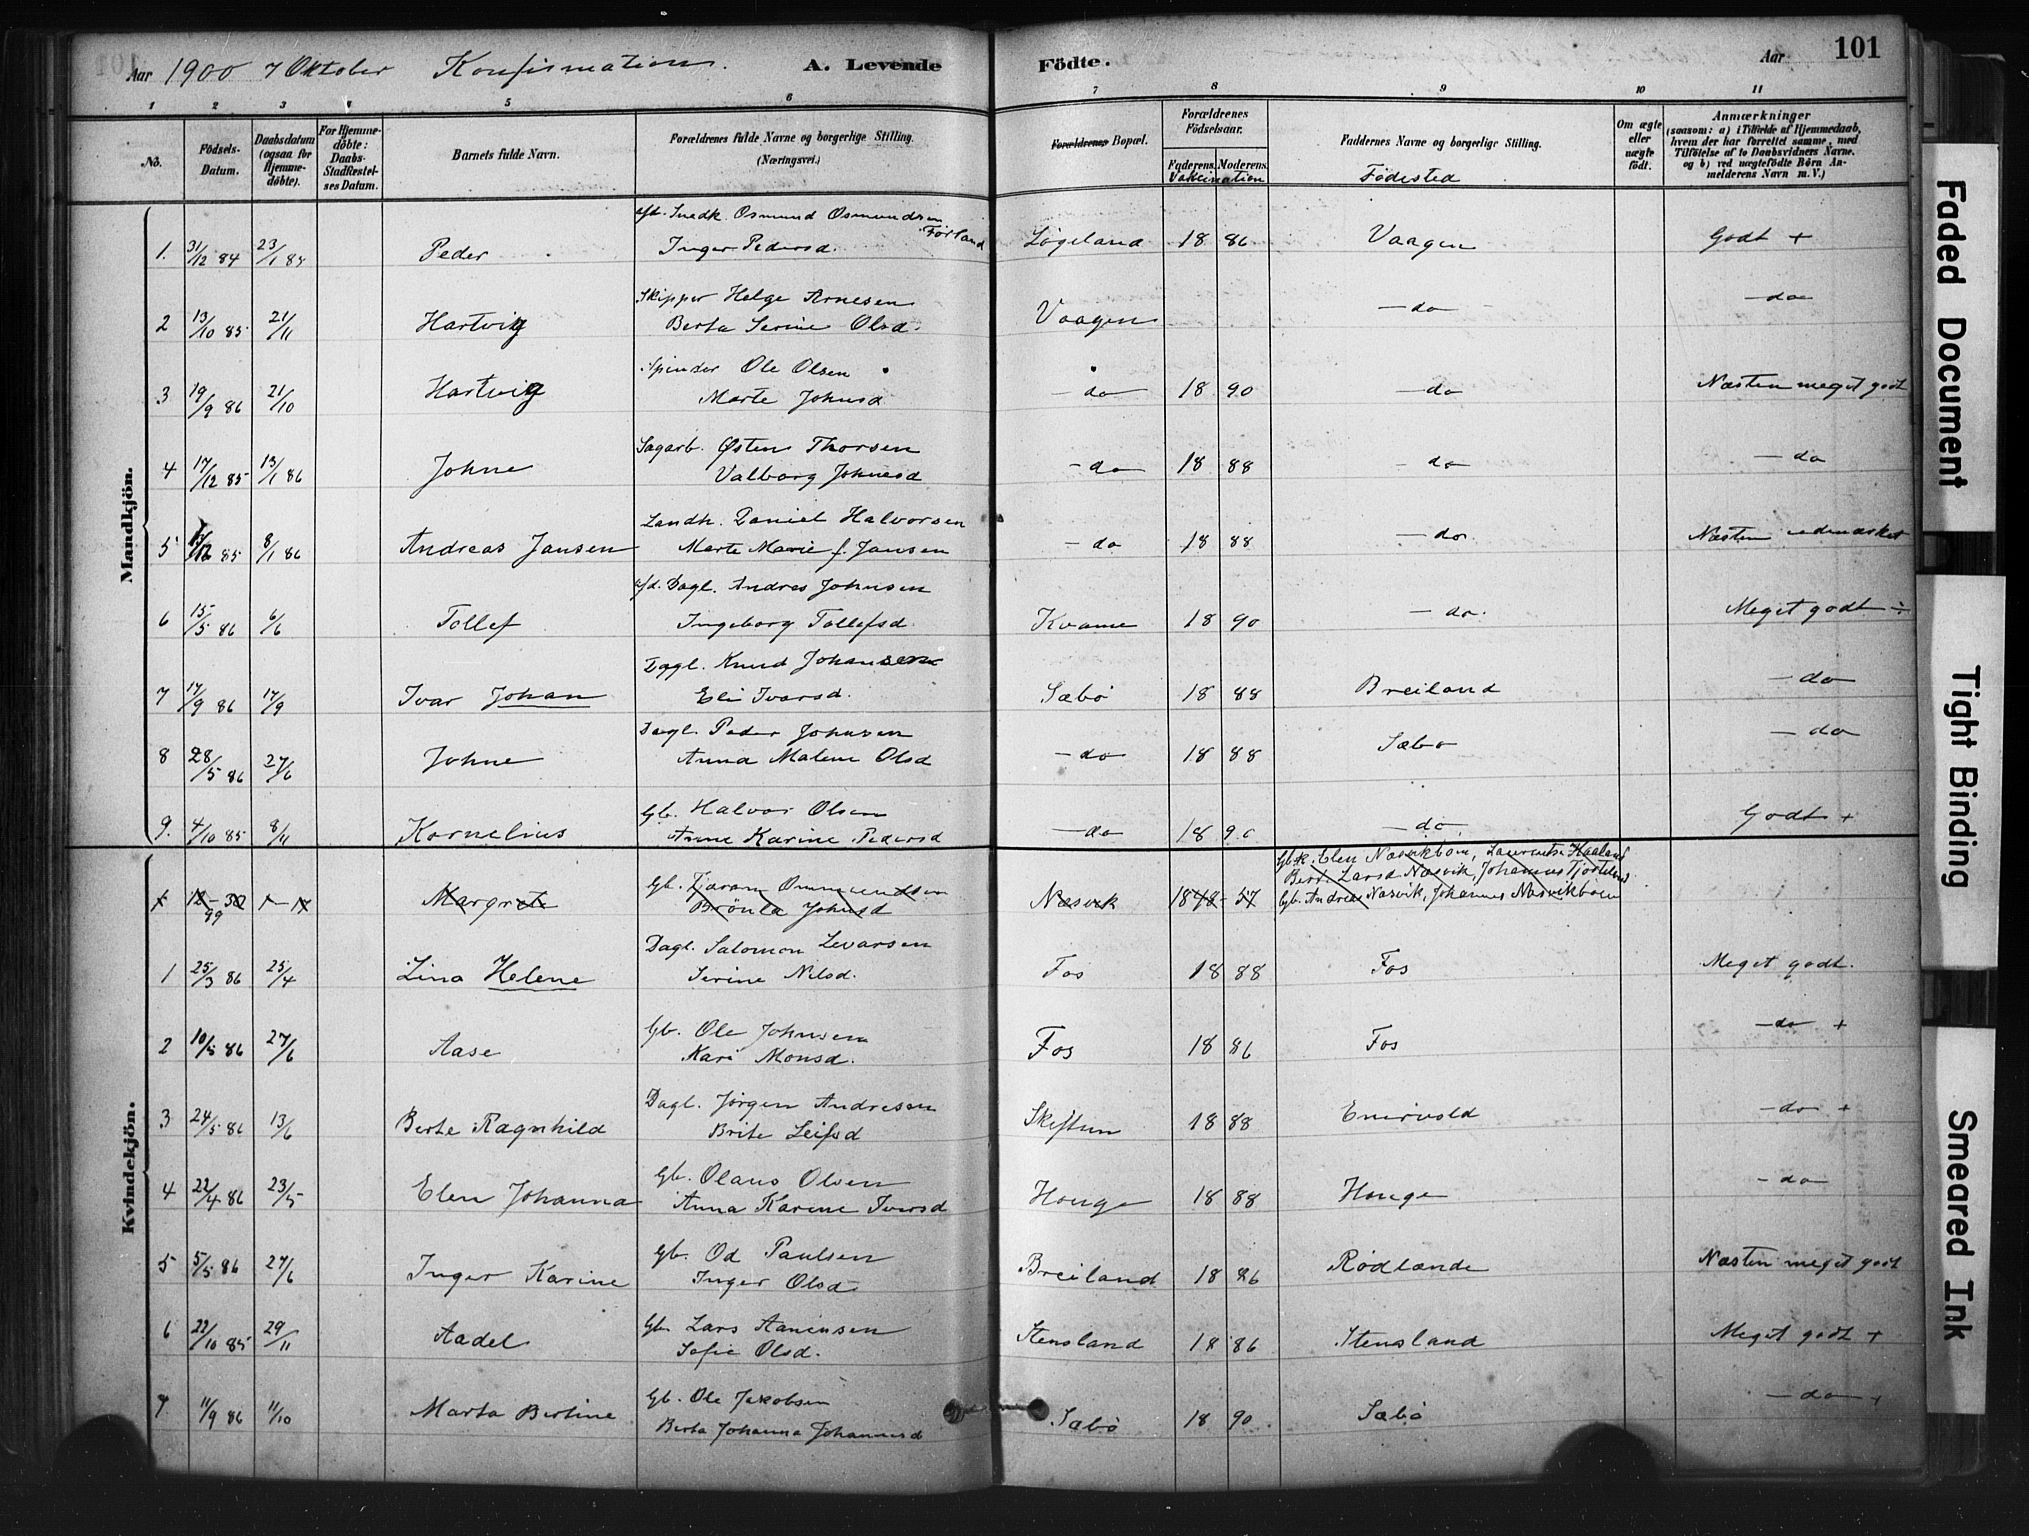 Aar 1900 7 Oktober Konfirmation. A. Levende Födte. Aar 101
1 2 3 4 5 6 7 8 9 10 11
No. Födsels-Datum. Daabsdatum (ogsaa for Hjemme-döbte). For Hjemme-döbte: Daabs-Stadfæstel-ses Datum. Barnets fulde Navn. Forældrenes fulde Navne og borgerlige Stilling. (Næringsvei.) Forældrenes Bopæl. Forældrenes Födselsaar. Faderens. Moderens. Vakcination Faddernes Navne og borgerlige Stilling. Födested Om ægte eller uægte födt. Anmærkninger (saasom: a) i Tilfælde af Hjemmedaab, hvem der har forrettet samme, med Tilföielse af to Daabsvidners Navne, og b) ved uægtefödte Börn An-melderens Navn m. V.)
Mandkjön.
Snedk. Osmund Osmundsen Førland
1. 31/12 84 23/1 85 Peder Inger Pedersd. Løgeland 18 86 Vaagen Godt +
Skipper Helge Arnesen
2 13/10 85 21/11 Hartvig Berta Serine Olsd. Vaagen — do — do
Spinder Ole Olsen
3 19/9 86 21/10 Hartvig Marte Johnsd — do 18 90 — do Næsten meget godt
Sagarb. Østen Thorsen
4 17/12 85 13/1 86 Johne Valborg Johnesd — do 18 88 — do — do
Landh. Daniel Halvorsen
5 12 85 8/1 86 Andreas Jansen Marte Marie f. Jansen — do 18 88 — do Næsten udmærket
afd. Dagl. Andres Johnsen
6 15/5 86 6/6 Tollef Ingeborg Tollefsd. Kvame 18 90 — do. Meget godt ÷
Dagl. Knud Johansen
7 17/9 86 17/9 Ivar Johan Eli Ivarsd. Sæbö 18 88 Breiland — do
Dagl. Peder Johnsen
8 28/5 86 27/6 Johne Anna Malene Olsd — do 18 88 Sæbö — do
Gb. Halvor Olsen
9. 4/10 85 8/11 Kornelius Anne Karine Pedersd — do 18 90 — do Godt +
Kvindekjön.
Gb. Ommundsen
Margrete Brönla Johnsd Næsvik 1848 - 57
Gb. Andreas Næsvik, Johannes Næsvikboen
Dagl. Salomon Levarsen
1 25/3 86 25/4 Lina Helene Serine Nilsd. Fos 18 88 Fos Meget godt.
Gb. Ole Johnsen
2 10/5 86 27/6 Aase Kari Monsd. Fos 18 86 Fos — do +
Dagl. Jørgen Andresen
3 24/5 86 13/6 Berte Ragnhild Brite Leifsd Skiftun 18 88 — do +
Gb. Olaus Olsen
4 22/4 86 23/5 Elen Johanna Anna Karine Iversd Houge 18 88 Houge — do
Gb. Od Paulsen
5 5/5 86 27/6 Inger Karine Inger Olsd Breiland 18 86 Rödlænde Næsten meget godt
Gb. Lars Aanensen
6 22/10 85 29/11 Aadel Sofie Olsd. Stensland 18 86 Stensland Meget godt +
Gb. Ole Jakobsen
7 11/9 86 11/10 Marta Bertine Berta Johanna Johannesd Sæbö 18 90 Sæbö — do +
Faded Document
Tight Binding
Smeared Ink